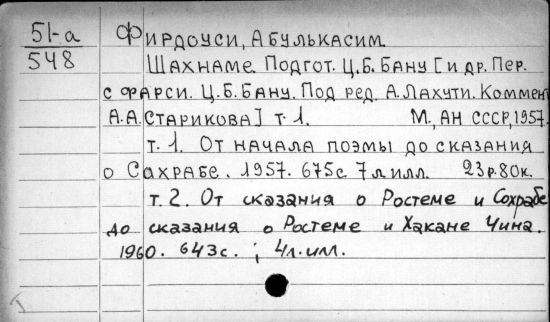 51-а
548
Фирдоуси, Абулькасим
Шахнаме. Подгот. Ц.Б. Бану [и др. Пер.
с фарси. Ц.Б. Бану. Под ред. А. Лахути. Коммент
А.А. Старикова] т. 1. М., АН СССР, 1957.
т. 1. От начала поэмы до сказания
о Сахрабе. 1957. 675с. 7л. илл. 23р.80к.
т. 2. От сказания о Ростеме и Сохрабе
до сказания о Ростеме и Хакане Чина.
1960. 643с. ; 4л. илл.